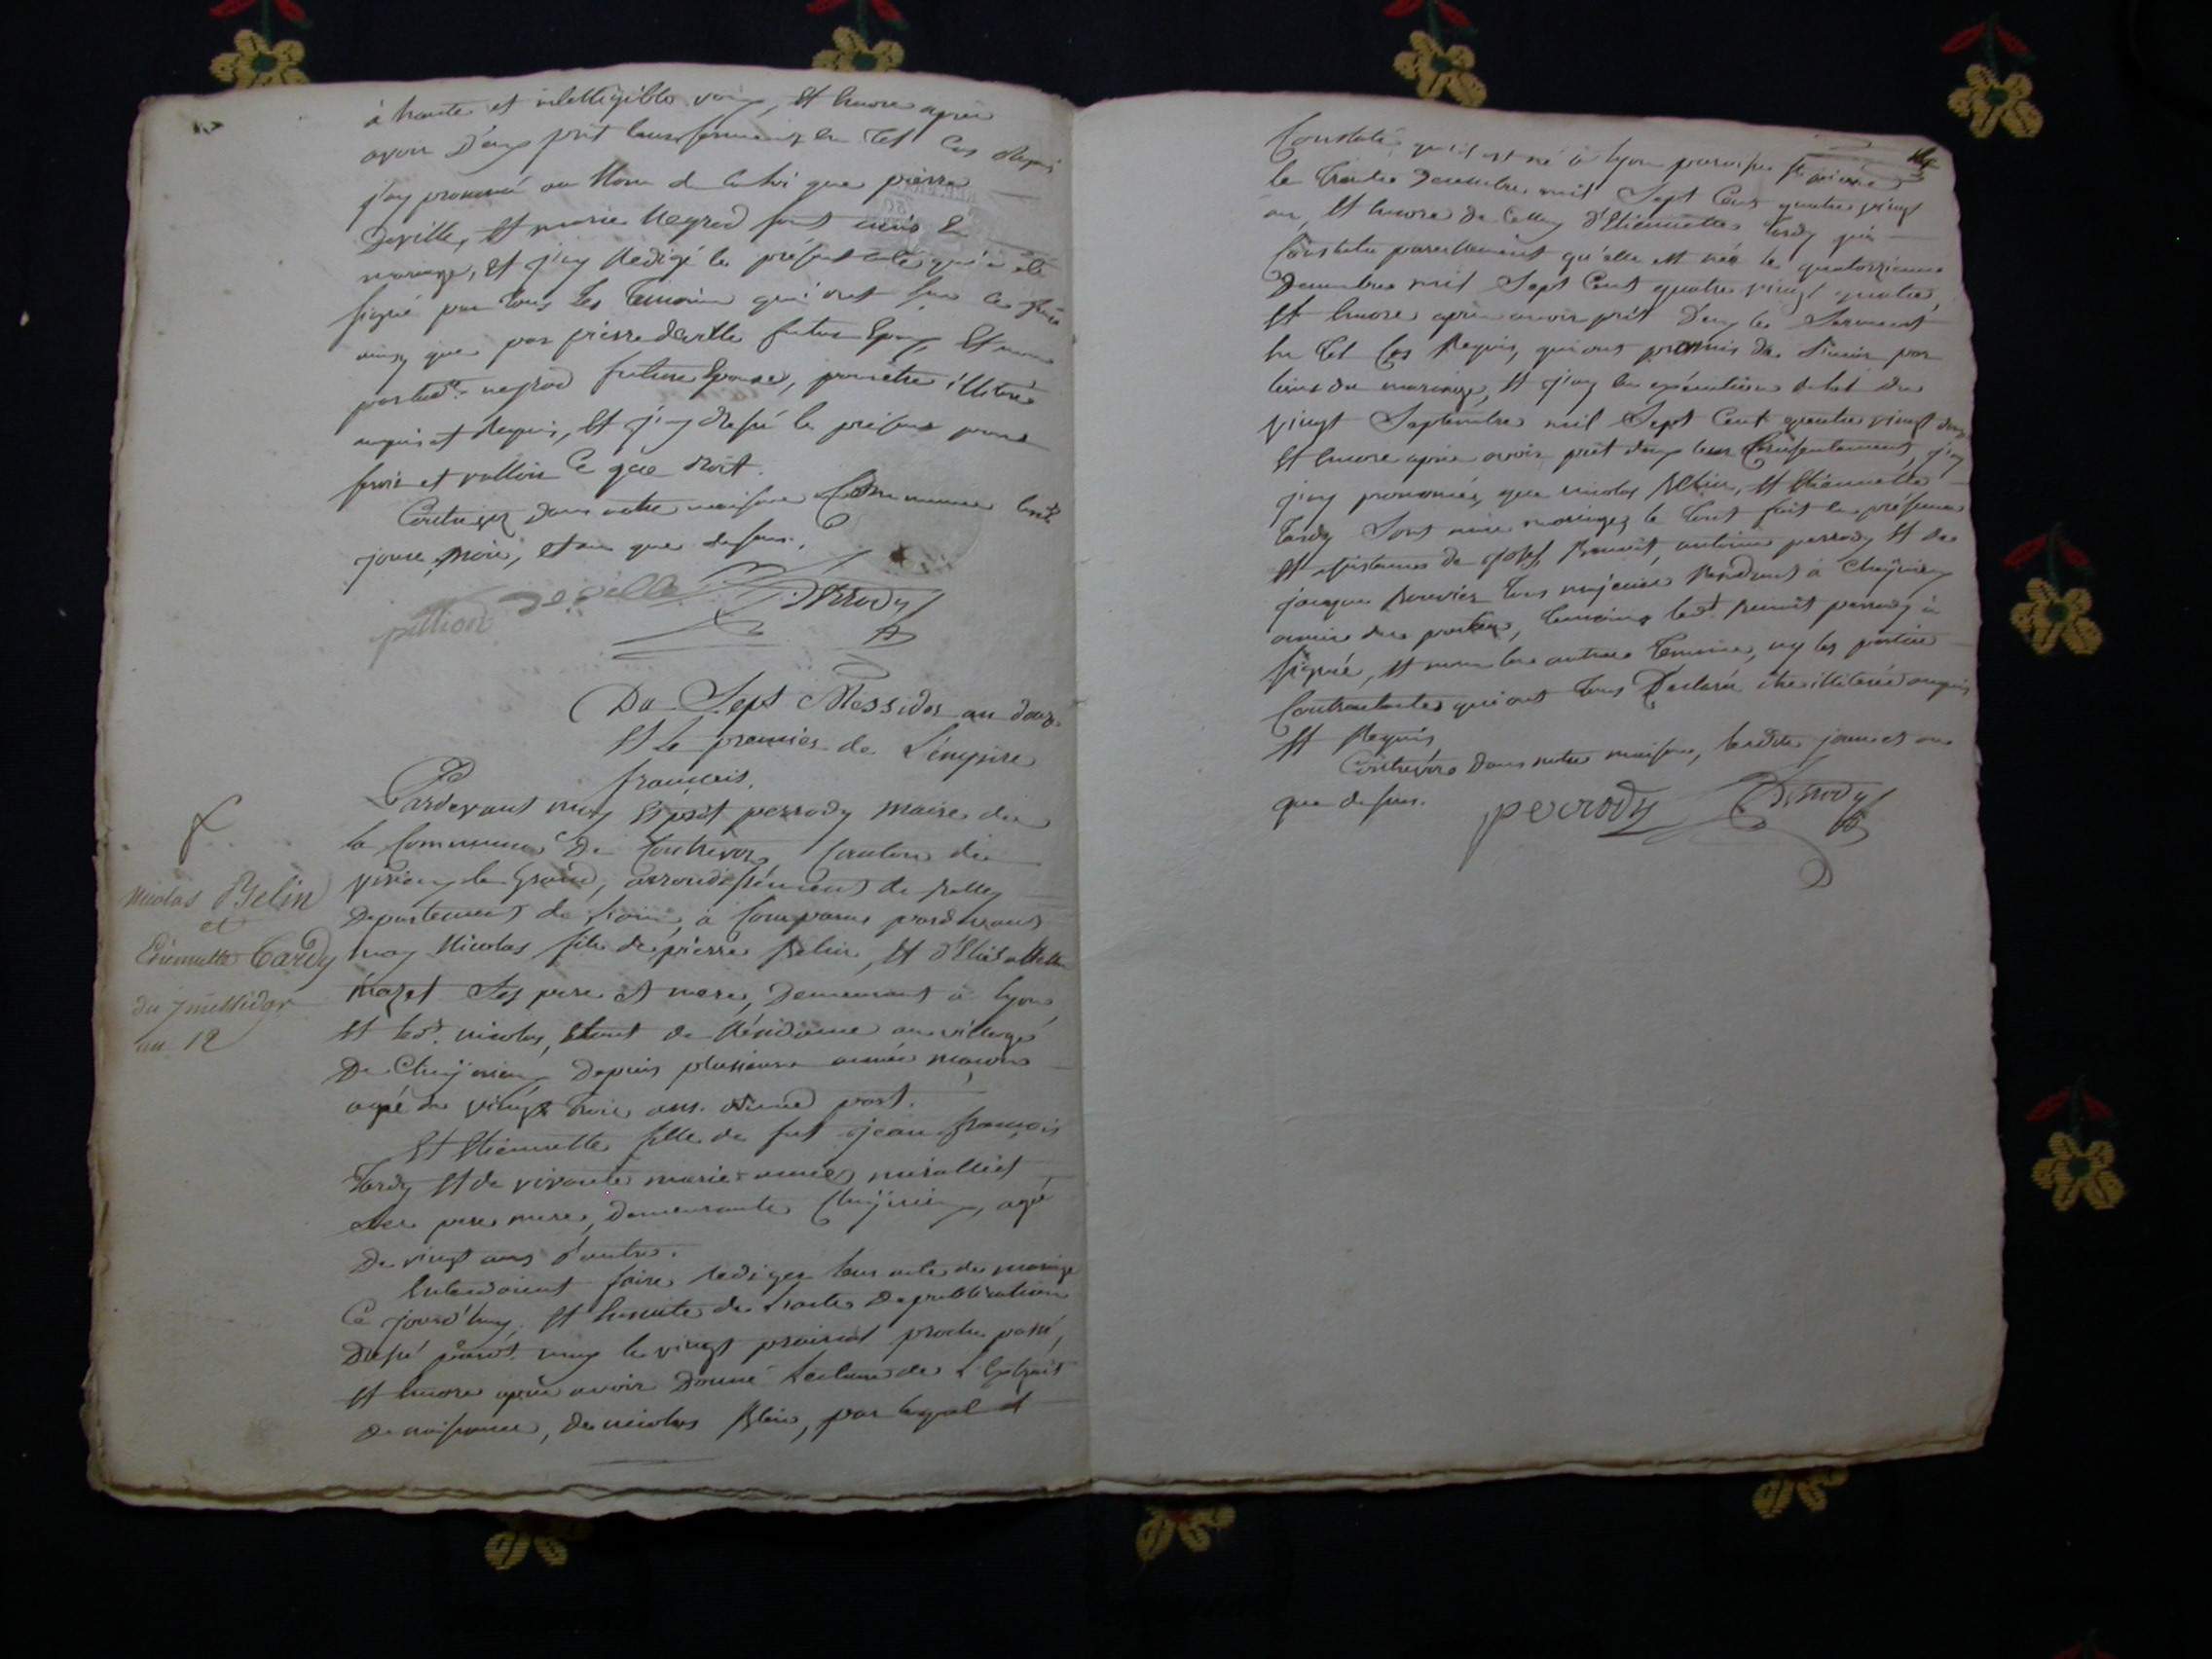 à haute et intelligible voix, Et encore après
avoir d'eux prit leur serment en tel cas requis
j'ay prononcé au Nom de la loi que pierre
Deville, Et marie Negrod sont unis En
mariage, Et j'ay Redigé le présent acte qui a été
signé par tous les temoins qui ont su ce faire
ainsy que par pierre deville futur Epoux, Et non
par lad.e negrod future Epouse, pour être illiterée
enquis et Requis, Et j'ay dressé le présent pour
servir et valloir Ce que droit.
Contrevoz dans notre maison Commune lesdits
jour, mois, et an que dessus.
pillion deville Perrody
Du Sept Messidor an douze
Et le premier de L'empire
français.
Pardevant moy perrody Maire de
la Commune De Contrevoz, Canton de
virieux le Grand, arrondissement de Belley
Departement de L'ain, à Comparus pardevant
moy Nicolas fils de pierre Belin, Et d'Elisabeth
mazet Ses pere et mere, Demeurant à lyon,
Et led.t nicolas, Etant de Résidance au village
De Cheynieu Depuis plusieurs années
agé de vingt trois ans. d'une part.
Et Etiennette fille de fut jean françois
Tardy Et de vivante marie anne
ses pere mere, Demeurante Cheynieu, agé
De vingt ans d'autre.
Entendoient faire rediger leur acte de mariage
Ce jourd'huy, Et Ensuite de L'acte de publication
Dressé le vingt prairial proche passé,
Et encore après avoir Donné lecture de L'Extrait
De naissance, de nicolas Belin, par lequel il
Nicolas Belin
et
Etiennette Tardy
du 7 messidor
an 12
Constate qu'il est né à lyon paroisse St pierre
le trente Decembre mil Sept Cent quatre vingt
un, Et encore de Celluy d'Etiennette Tardy qui
Constate pareillement qu'elle est née le quatorzieme
Decembre mil Sept Cent quatre vingt quatre,
Et encore après avoir prit D'eux le Serment
En tel Cas Requis, qui ont promis de S'unir par
liens du mariage, Et j'ay en execution de la loi du
vingt Septembre mil Sept Cent quatre vingt douze
Et encore après avoir prit d'eux leur Consentement, j'ay
j'ay prononcé, que nicolas Belin, Et Etiennette
Tardy Sont unis mariage, le tout fait en présence
Et assistance de Josef Benoit, antoine perrody Et de
jacque Bouvier tous majeurs Résidants à Cheynieu
amis des parties, temoins led.t perrody à
signé, Et non les autres temoins, ny les parties
Contractantes qui ont tous Déclaré être illiterés enquis
Et Requis
Contrevoz Dans notre maison, lesdits jour et an
que dessus.
perrody Perrody